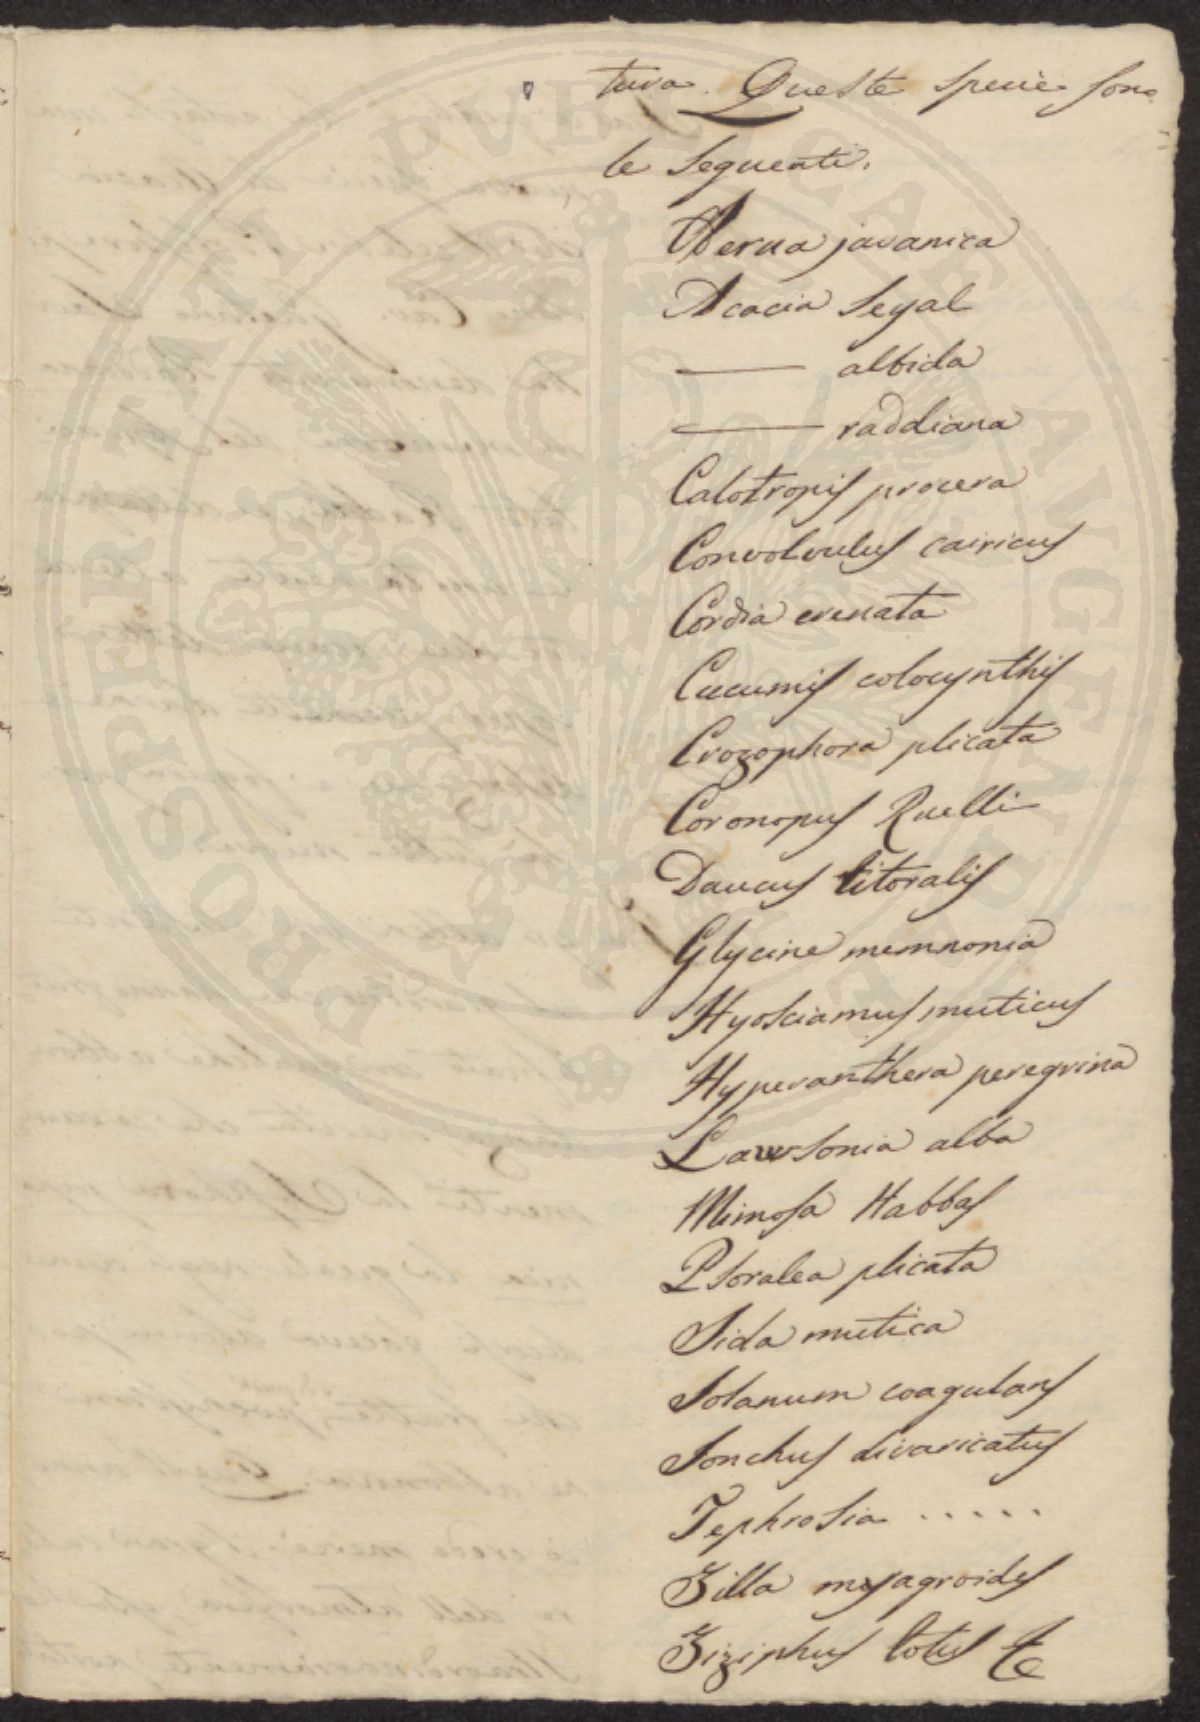 tura. Queste specie sono
le seguenti.
Aerua javanica
Acacia Seyal
—— albida
—— raddiana
Calotropis procera
Convolvulus cairicus
Cordia crenata
Cucumis colocynthis
Crozophora plicata
Coronopus Ruelli
Daucus litoralis
Glycine memnonia
Hyosciamus muticus
Hyperanthera peregrina
Lawsonia alba
Mimosa Habbas
Psoralea plicata
Sida mutica
Solanum coagulans
Sonchus divaricatus
Tephrosia .....
Zilla myagroides
Ziziphus lotus &c
PROSPERITATI PVBLICAE AVGENDAE